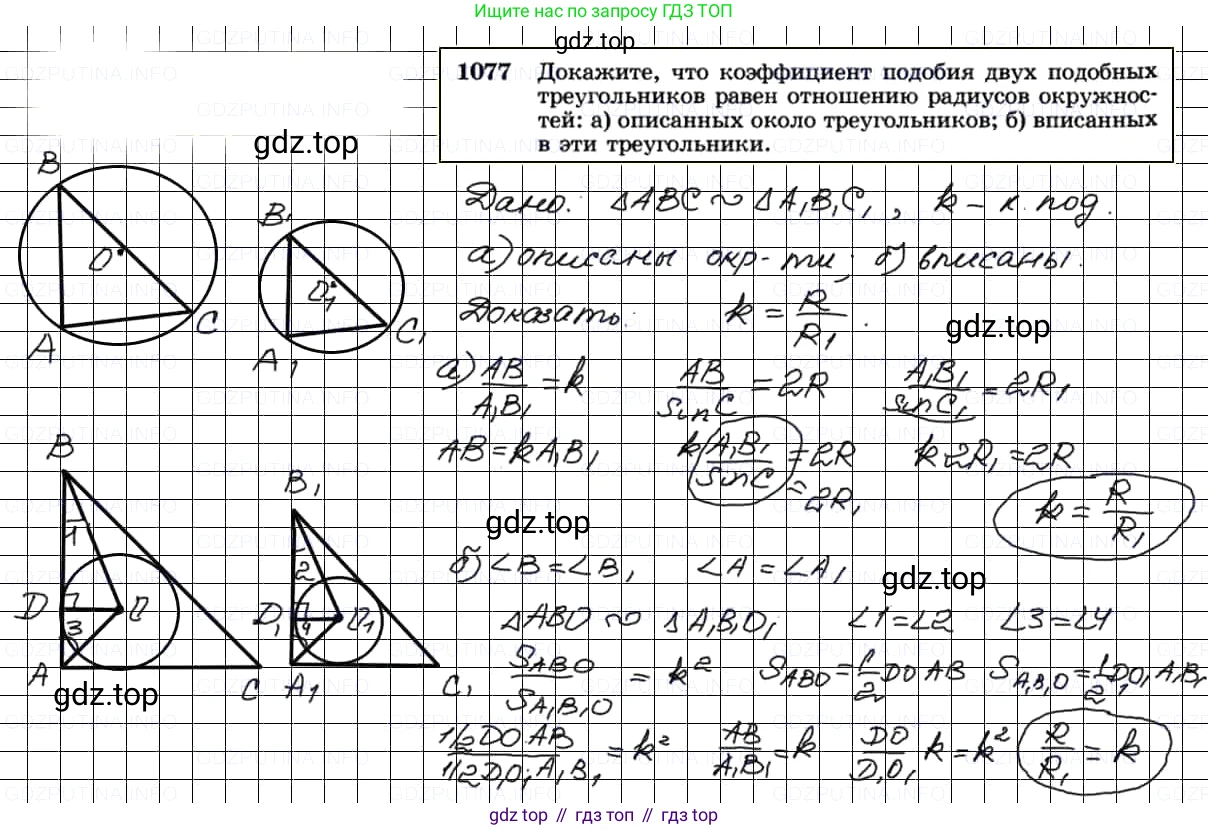 Ищите нас по запросу ГДЗ ТОП
gdz.top
1077 Докажите, что коэффициент подобия двух подобных
треугольников равен отношению радиусов окружнос-
тей: а) описанных около треугольников; б) вписанных
в эти треугольники.
gdz.top
Дано: ΔABC ~ ΔA₁B₁C₁, k – к. под.
а) описаны окр-ти; б) вписаны.
Доказать: k = R/R₁.
gdz.top
B
O
A
C
B₁
O₁
A₁
C₁
а) AB/A₁B₁ = k AB/sin C = 2R A₁B₁/sin C₁ = 2R₁
AB = kA₁B₁ k A₁B₁/sin C = 2R k 2R₁ = 2R
= 2R₁
k = R/R₁
gdz.top
б) ∠B = ∠B₁ ∠A = ∠A₁
gdz.top
ΔABO ~ ΔA₁B₁O₁ ∠1 = ∠2 ∠3 = ∠4
S ABO/S A₁B₁O = k² S ABO = 1/2 DO AB S A₁B₁O = 1/2 DO₁ A₁B₁
1/2 DO AB/1/2 D₁O₁ A₁B₁ = k² AB/A₁B₁ = k DO/D₁O₁ k = k² R/R₁ = k
B
1
D
O
3
A
C
B₁
2
D₁
O₁
4
A₁
C₁
gdz.top
gdz.top // гдз топ // gdz.top